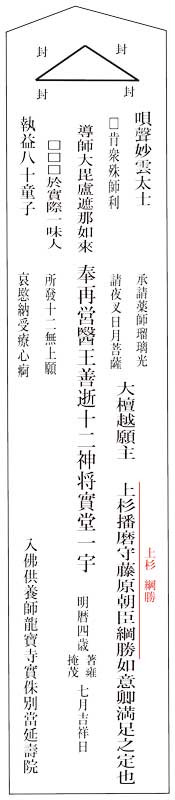 封 封
封 封
唄聲妙雲太士
□肯衆殊師利
導師大毘盧遮那如來
□□□於實際一味人
執益八十童子
承請藥師瑠璃光
請夜叉日月菩薩
奉再営醫王善逝十二神将實堂一宇
所發十二無上願
哀愍納受療心痾
大檀越願主 上杉播磨守藤原朝臣綱勝如意卿満足之定也
上杉 綱勝
明暦四歳 著雍掩茂 七月吉祥日
入佛供養師龍寶寺實侏別當延壽院